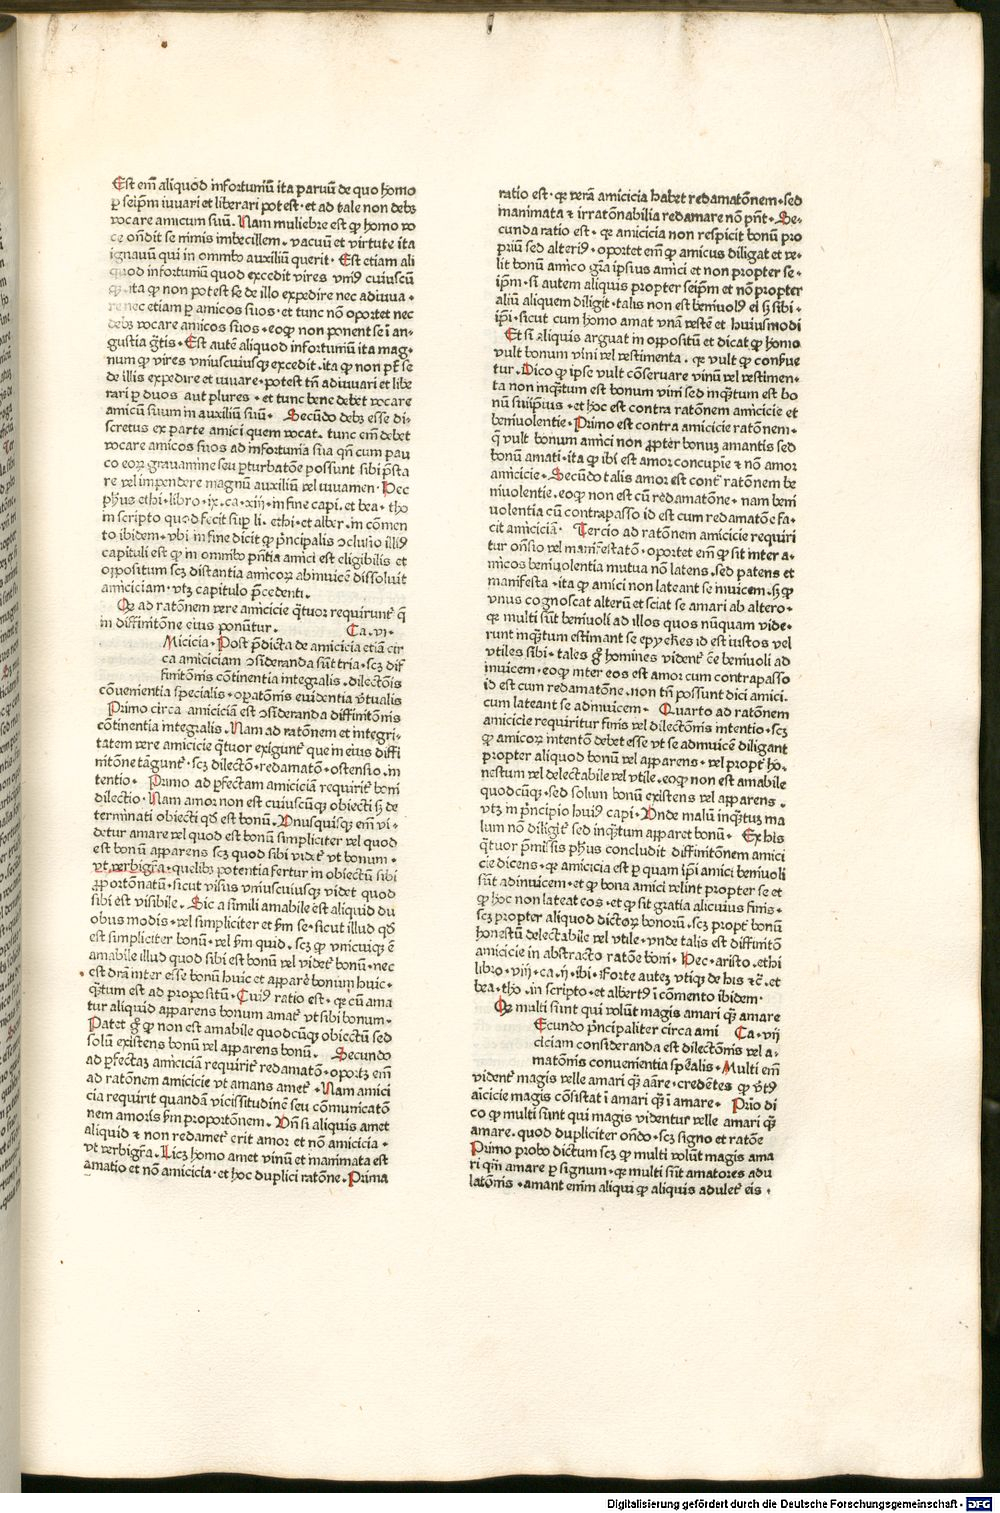 Est em̄ aliquod infortuniū ita paruū de quo homo
ꝑ seip̄m iuuari et liberari potest · et ad tale non debꝫ
vocare amicum suū · Nam muliebre est ꝙ homo vo
ce on̄dit se nimis imbecillem · vacuū et virtute ita
ignauū qui in om̄ibꝰ auxiliū querit · Est etiam ali
quod infortuniū quod excedit vires vniꝰ cuiuscū
qꝫ · ita ꝙ non potest se de illo expedire nec adiuua ·
re nec etiam ꝑ amicos suos · et tunc nō oportet nec
debꝫ vocare amicos suos · eoqꝫ non ponent se ī an-
gustia gratis · Est autē aliquod infortuniū ita mag-
num ꝙ vires vniuscuiusqꝫ excedit · ita ꝙ non pōt se
de illis expedire et iuuare · potest tn̄ adiuuari et libe
rari ꝑ duos aut plures · et tunc bene debet vocare
amicū suum in auxiliū suū · Secūdo debꝫ esse di-
scretus ex parte amici quem vocat · tunc em̄ debet
vocare amicos suos ad infortunia sua qn̄ cum pau
co eoꝝ grauamine seu ꝑturbatōe possunt sibi p̄sta
re vel impendere magnū auxiliū vel iuuamen · Hec
ph̄us ethi · libro · ix · ca · xiii · in fine capi · et bea · tho
in scripto quod fecit suꝑ li · ethi · et alber · in cōmen
to ibidem · vbi in fine dicit ꝙ p̄ncipalis ↄclusio illiꝰ
capituli est ꝙ in om̄ibꝰ p̄ntia amici est eligibilis et
oppositum scꝫ distantia amicoꝝ abinuicē dissoluit
amiciciam · vtꝫ capitulo p̄cedenti ·
Qꝫ ad ratōnem vere amicicie q̄tuor requirunt᷑ q̄
in diffinitōne eius ponūtur · Ca · vi ·
Micicia · Post p̄dicta de amicicia etiā cir
ca amiciciam ↄsideranda sūt tria · scꝫ dif
finitōnis cōtinentia integralis · dilectōis
cōuenientia specialis · oꝑatōnis euidentia v̄tualis
Primo circa amiciciā est ↄsideranda diffinitōnis
cōtinentia integralis · Nam ad ratōnem et integri-
tatem vere amicicie q̄tuor exigunt᷑ que in eius diffi
nitōne tāgunt᷑ · scꝫ dilectō · redamatō · ostensio · in
tentio · Primo ad ꝑfectam amiciciā requirit᷑ boni
dilectio · Nam amor non est cuiuscūqꝫ obiecti sꝫ de
terminati obiecti qd̄ est bonū · Vnusquisqꝫ em̄ vi-
detur amare vel quod est bonū simpliciter vel quod
est bonū apparens scꝫ quod sibi videt᷑ vt bonum ·
vt verbigr̄a · quelibꝫ potentia fertur in obiectū sibi
ꝓportōnatū · sicut visus vniuscuiusqꝫ videt quod
sibi est visibile · Sic a simili amabile est aliquid du
obus modis · vel simpliciter et ẜm se · sicut illud qd̄
est simpliciter bonū · vel ẜm quid · scꝫ ꝙ vnicuiqꝫ ē
amabile illud quod sibi est bonū vel videt᷑ bonū · nec
est dr̄a inter esse bonū huic et apparē bonum huic ·
q̄tum est ad propositū · Cuiꝰ ratio est · qꝫ cū ama
tur aliquid apparens bonum amat᷑ vt sibi bonum ·
Patet gͦ ꝙ non est amabile quodcūqꝫ obiectū sed
solū existens bonū vel apparens bonū · Secundo
ad ꝑfectaꝫ amiciciā requirit᷑ redamatō · oportꝫ em̄
ad ratōnem amicicie vt amans amet᷑ · Nam amici
cia requirit quandā vicissitudinē seu cōmunicatō
nem amoris ẜm proportōnem · Vn̄ si aliquis amet
aliquid ⁊ non redamet᷑ erit amor et nō amicicia ·
vt verbigr̄a · Licꝫ homo amet vinū et inanimata est
amatio et nō amicicia · et hoc duplici ratōne · Prima
ratio est · qꝫ vera amicicia habet redamatōnem · sed
inanimata ⁊ irratōnabilia redamare nō pn̄t · Se-
cunda ratio est · qꝫ amicicia non respicit bonū pro
priū sed alteriꝰ · oportet em̄ ꝙ amicus diligat et ve-
lit bonū amico gr̄a ipsius amici et non propter se-
ip̄m · si autem aliquis propter seipm̄ et nō propter
aliū aliquem diligit · talis non est beniuolꝰ ei sꝫ sibi-
ip̄i · sicut cum homo amat vnā vestē et huiusmodi
Et si aliquis arguat in oppositū et dicat ꝙ homo
vult bonum vini vel vestimenta · qꝫ vult ꝙ conserue
tur · Dico ꝙ ipse vult cōseruare vinū vel vestimen-
ta non inq̄tum est bonum vini sed inq̄tum est bo
nū suiip̄ius · et hoc est contra ratōnem amicicie et
beniuolentie · Primo est contra amicicie ratōnem ·
q̄ vult bonum amici non ꝓpter bonuꝫ amantis sed
bonū amati · ita ꝙ ibi est amor concupīe ⁊ nō amor
amicicie · Secūdo talis amor est contᷓ ratōnem be
niuolentie · eoqꝫ non est cū redamatōne · nam beni
uolentia cū contrapasso id est cum redamatōe fa-
cit amiciciā · Tercio ad ratōnem amicicie requiri
tur on̄sio vel manifestatō · oportet em̄ ꝙ sit inter a-
micos beniuolentia mutua nō latens · sed patens et
manifesta · ita ꝙ amici non lateant se inuicem · sꝫ ꝙ
vnus cognoscat alterū et sciat se amari ab altero ·
qꝫ multi sūt beniuoli ad illos quos nūquam vide-
runt inq̄tum estimant se epyekes id est iustos vel
vtiles sibi · tales gͦ homines vident᷑ ēe beniuoli ad
inuicem · eoqꝫ inter eos est amor cum contrapasso
id est cum redamatōne · non tn̄ possunt dici amici ·
cum lateant se adinuicem · Quarto ad ratōnem
amicicie requiritur finis vel dilectōnis intentio · scꝫ
ꝙ amicoꝝ intentō debet esse vt se adinuicē diligant
propter aliquod bonū vel apparens · vel propt᷑ ho-
nestum vel delectabile vel vtile · eoqꝫ non est amabile
quodcūqꝫ · sed solum bonū existens vel apparens ·
vtꝫ in p̄ncipio huiꝰ capi · Vnde malū inq̄tuꝫ ma
lum nō diligit᷑ sed inq̄tum apparet bonū · Ex his
q̄tuor p̄missis ph̄us concludit diffinitōnem amici
cie dicens · qꝫ amicicia est ꝑ quam ip̄i amici beniuoli
sūt adinuicem · et ꝙ bona amici velint propter se et
ꝙ hoc non lateat eos · et ꝙ sit gratia alicuius finis ·
scꝫ propter aliquod dictoꝝ bonorū · scꝫ propt᷑ bonū
honestū delectabile vel vtile · vnde talis est diffinitō
amicicie in abstracto ratōe boni · Hec · aristo · ethi
libro · viij · ca · ij · ibi · Forte auteꝫ vtiqꝫ de his ⁊c̄ · et
bea · tho · in scripto · et albertꝰ ī cōmento ibidem ·
Qꝫ multi sunt qui volūt magis amari qꝫ̄ amare
Ecundo p̄ncipaliter circa ami Ca · vij
ciciam consideranda est dilectōnis vel a-
matōnis conuenientia sp̄ealis · Multi em̄
vident᷑ magis velle amari qꝫ̄ aāre · credētes ꝙ v̄tꝰ
aīcicie magis cōsistat ī amari qꝫ̄ ī amare · Prīo di
co ꝙ multi sunt qui magis videntur velle amari qꝫ̄
amare · quod dupliciter on̄do · scꝫ signo et ratōe
Primo probo dictum scꝫ ꝙ multi volūt magis ama
ri qꝫ̄ amare ꝑ signum · qꝫ multi sūt amatores adu
latōnis · amant enim aliqui ꝙ aliquis adulet᷑ eis ·
Digitalisierung gefördert durch die Deutsche Forschungsgemeinschaft - DFG